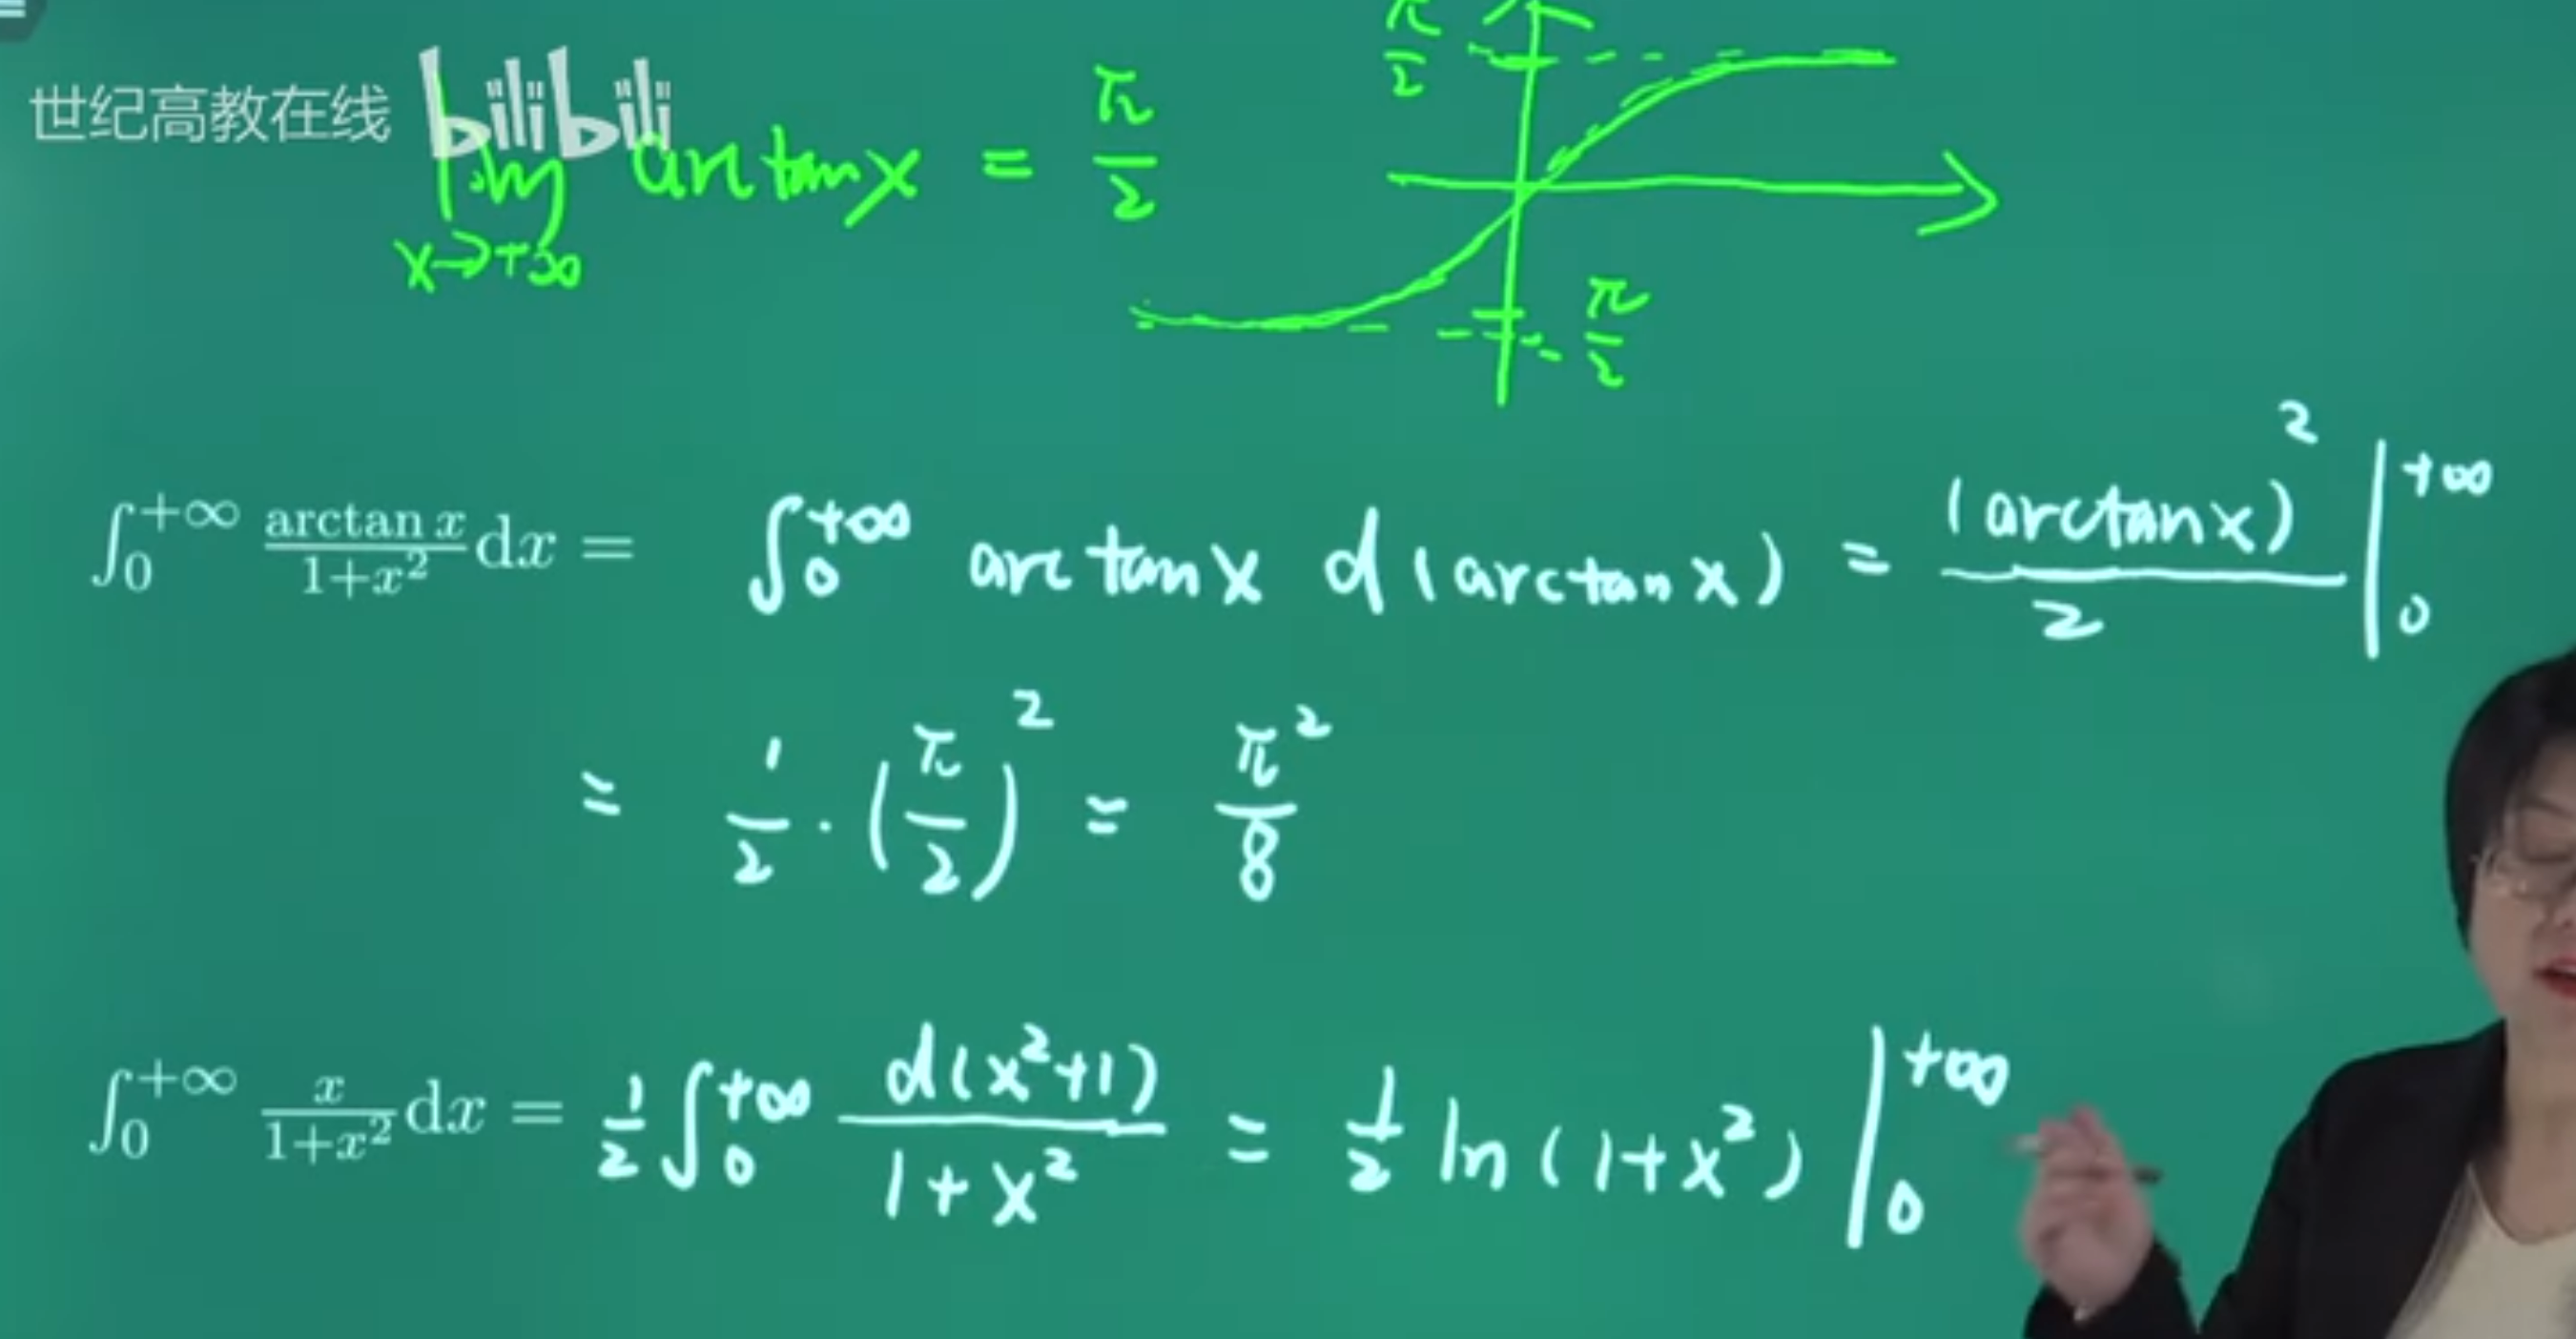 世纪高教在线 bilibili
lim arctanx = π/2
x→+∞
π/2
-π/2
∫₀^{+∞} arctan x/(1+x²) dx = ∫₀^{+∞} arctanx d(arctanx) = (arctanx)²/2 |₀^{+∞}
= 1/2·(π/2)² = π²/8
∫₀^{+∞} x/(1+x²) dx = 1/2 ∫₀^{+∞} d(x²+1)/(1+x²) = 1/2 ln(1+x²) |₀^{+∞}